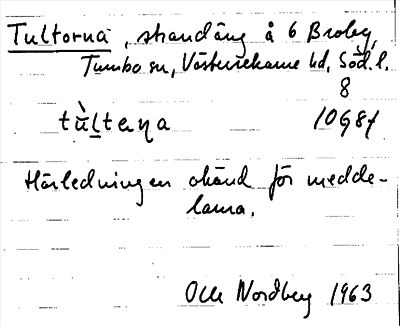 Tultorna, strandäng å 6 Broby,
Tumbo sn, Västerrekarne hd, Söd. l.
8
tùl̲teꞃa 10G8f
Härledningen okänd för medde-
larna.
Olle Nordberg 1963